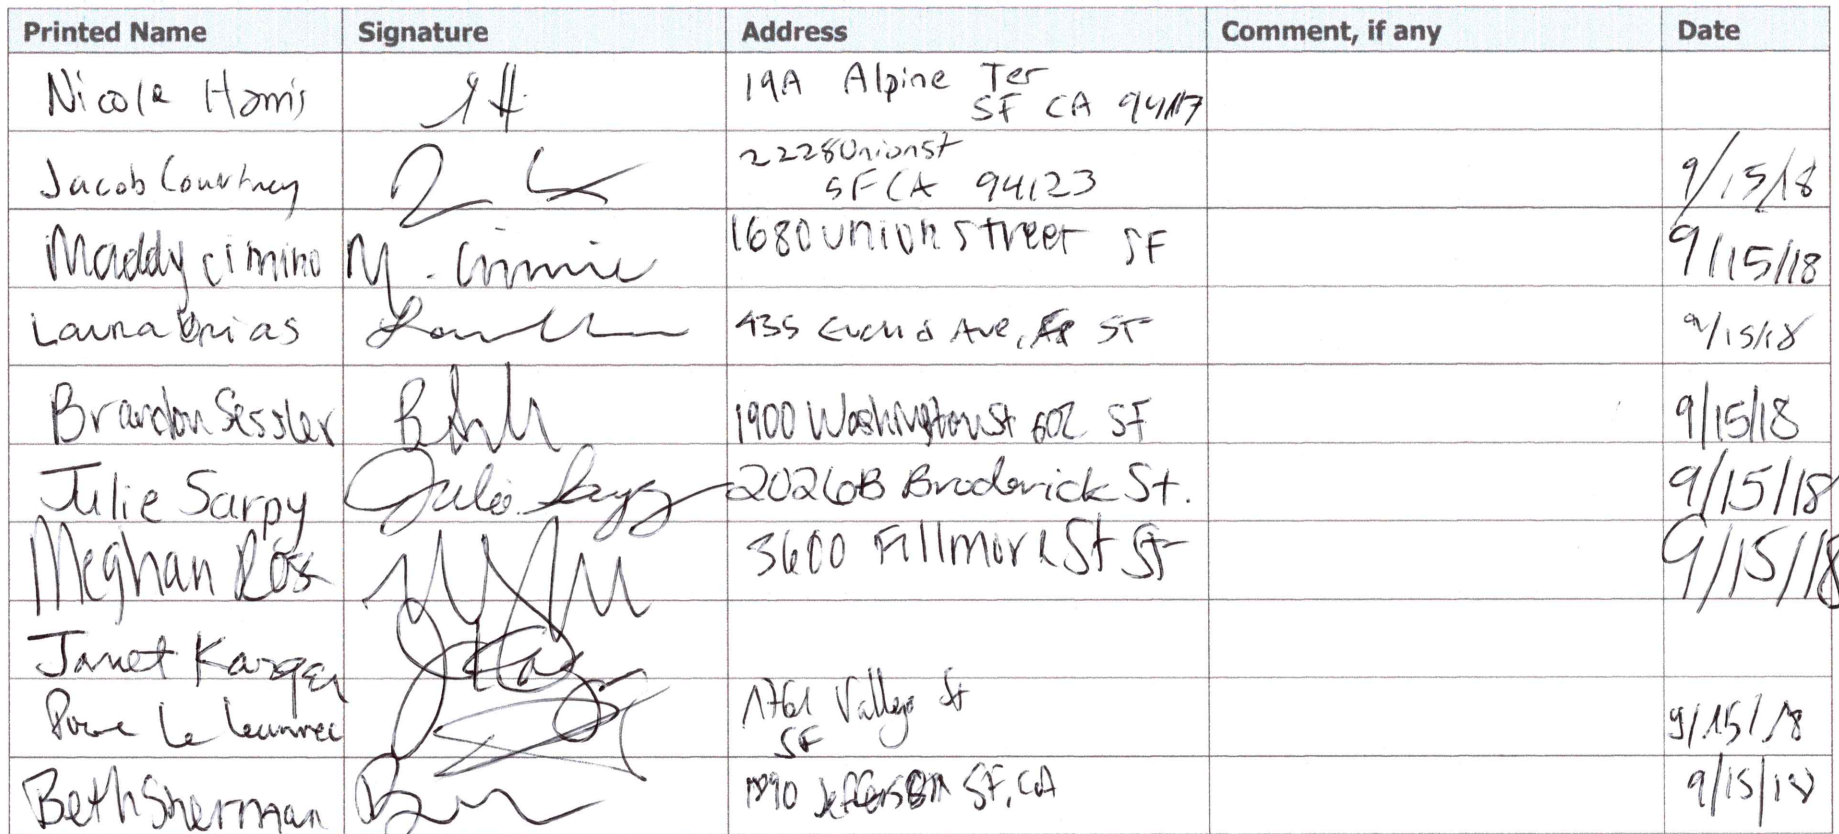 Printed Name Signature Address Comment, if any Date
Nicole Harris 19A Alpine Ter
SF CA 94117
Jacob Courtney 2228 Union St
SF CA 94123 9/15/18
Maddy Cimino M. Cimino 1680 Union Street SF 9/15/18
Laura 435 Euclid Ave, SF 9/15/18
Brandon Sessler 1900 Washington St 602 SF 9/15/18
Julie Sarpy Julie Sarpy 2026B Broderick St. 9/15/18
Meghan Ross 3600 Fillmore St SF 9/15/18
Janet
Le 1761 Vallejo St
SF 9/15/18
Beth Sherman Jefferson SF, CA 9/15/18